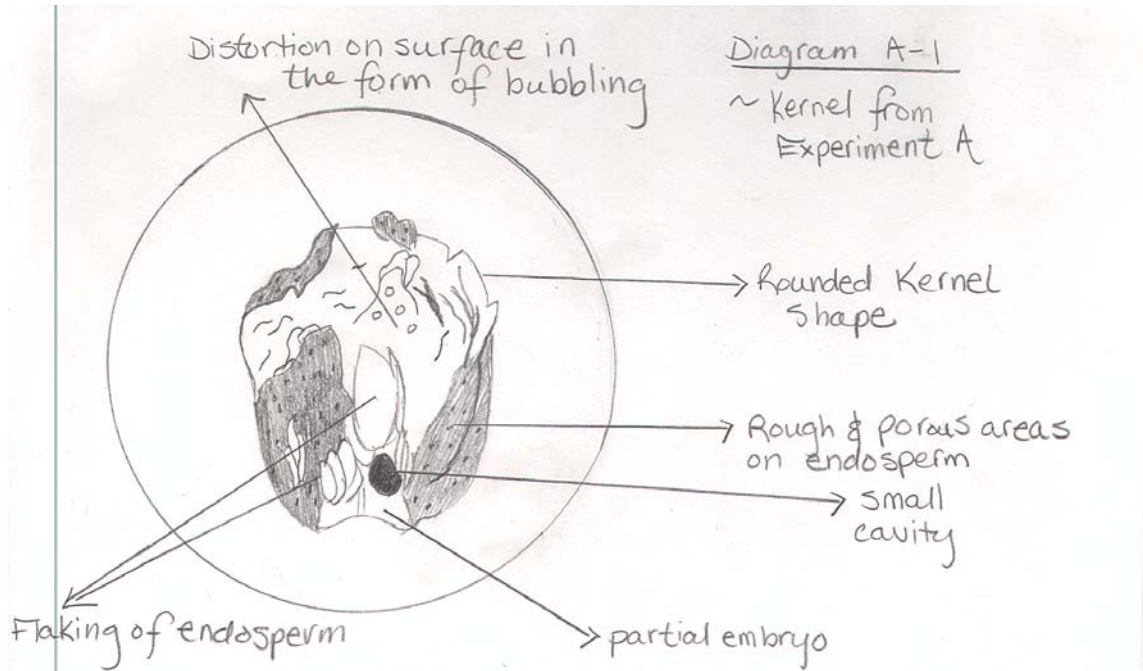 Distortion on surface in
the form of bubbling
Diagram A-1
~ Kernel from
Experiment A
Rounded Kernel
Shape
Rough & porous areas
on endosperm
small
cavity
Flaking of endosperm
partial embryo